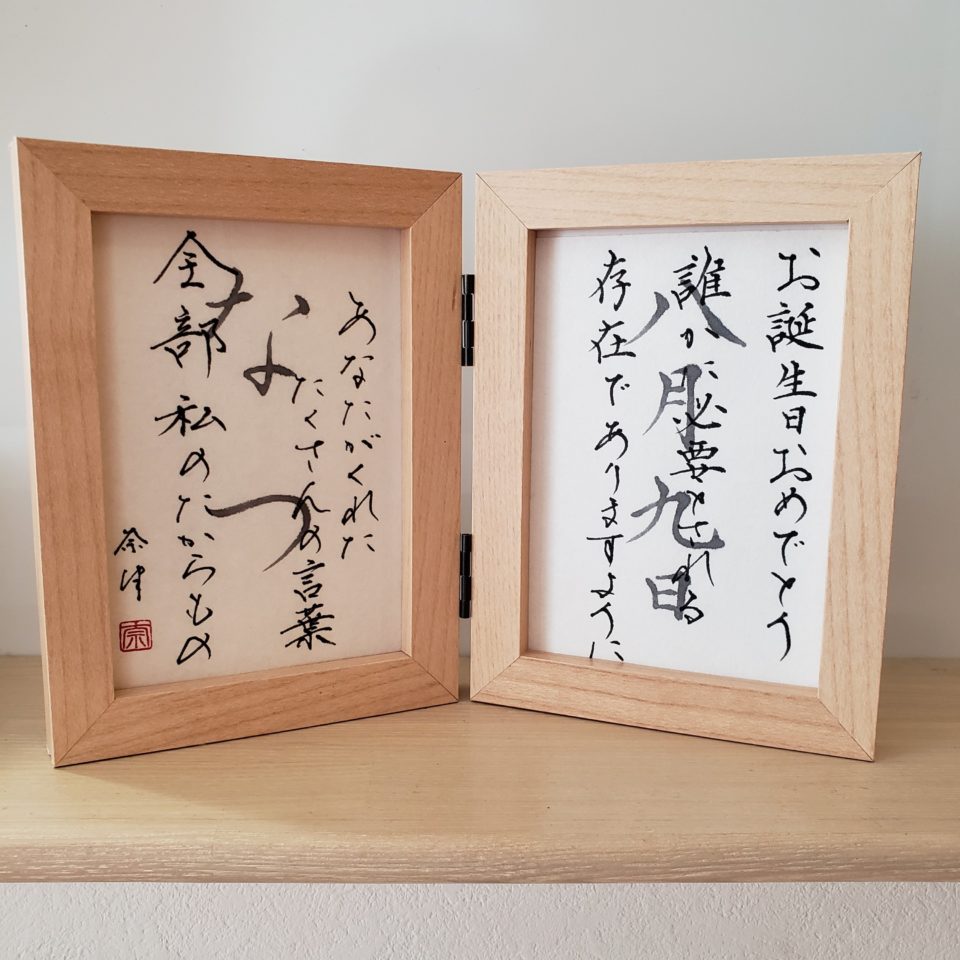 お誕生日おめでとう
誰かに必要とされる
存在でありますように
八月九日
あなたがくれた
たくさんの言葉
全部 私のたからもの
なつ
奈津